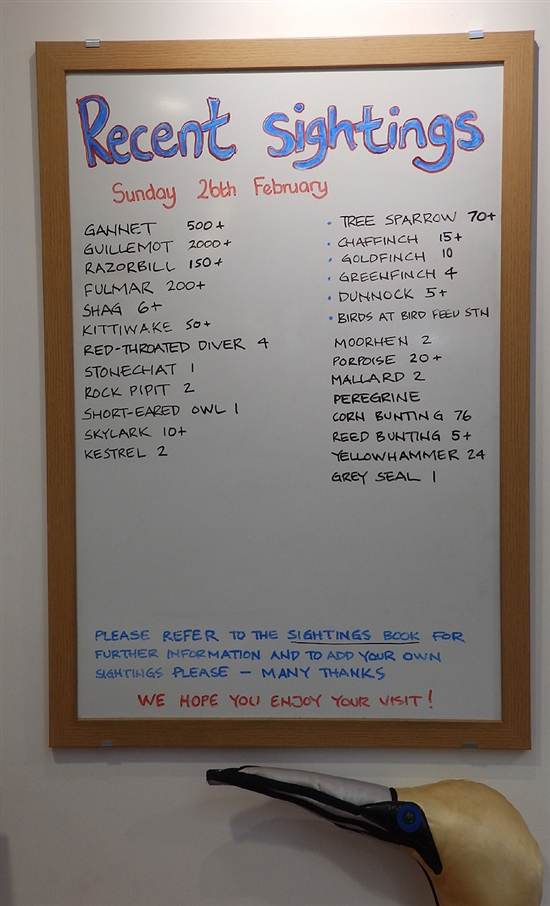 Recent sightings
Sunday 26th February
GANNET 500+
GUILLEMOT 2000+
RAZORBILL 150+
FULMAR 200+
SHAG 6+
KITTIWAKE 50+
RED-THROATED DIVER 4
STONECHAT 1
ROCK PIPIT 2
SHORT-EARED OWL 1
SKYLARK 10+
KESTREL 2
• TREE SPARROW 70+
• CHAFFINCH 15+
• GOLDFINCH 10
• GREENFINCH 4
• DUNNOCK 5+
• BIRDS AT BIRD FEED STN
MOORHEN 2
PORPOISE 20+
MALLARD 2
PEREGRINE
CORN BUNTING 76
REED BUNTING 5+
YELLOWHAMMER 24
GREY SEAL 1
PLEASE REFER TO THE SIGHTINGS BOOK FOR
FURTHER INFORMATION AND TO ADD YOUR OWN
SIGHTINGS PLEASE - MANY THANKS
WE HOPE YOU ENJOY YOUR VISIT!